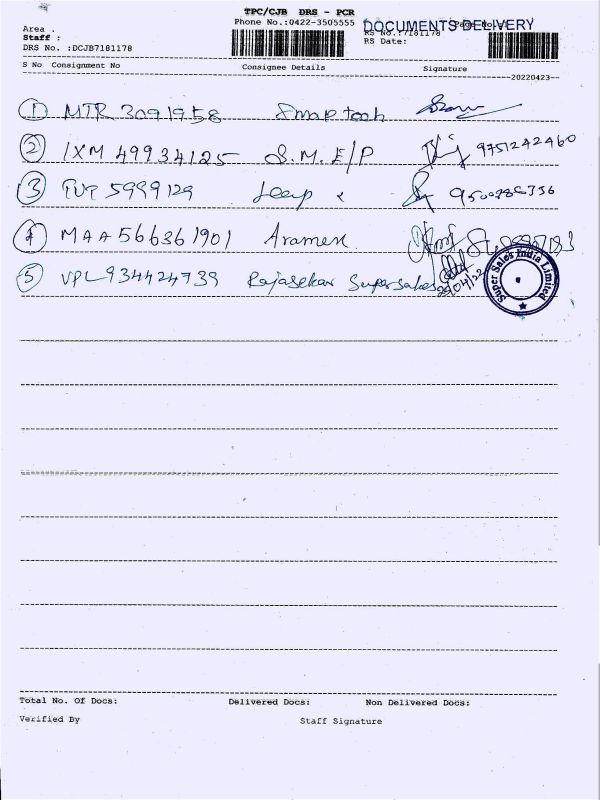 TPC/CJB DRS - PCR
Area .
Phone No.:0422-3505555
DOCUMENTS DELIVERY
Staff :
RS No.:7181178
DRS No. :DCJB7181178
RS Date:
S No Consignment No Consignee Details Signature
20220423
1 MTR 3091958
2 IXM 49934125 S.M. E/P 9751242460
3 5999129
4 MAA 566361901 Aramex
5 VPL 934424739 Rajasekar Supersales
Super Sales India Limited
Total No. Of Docs: Delivered Docs: Non Delivered Docs:
Verified By Staff Signature